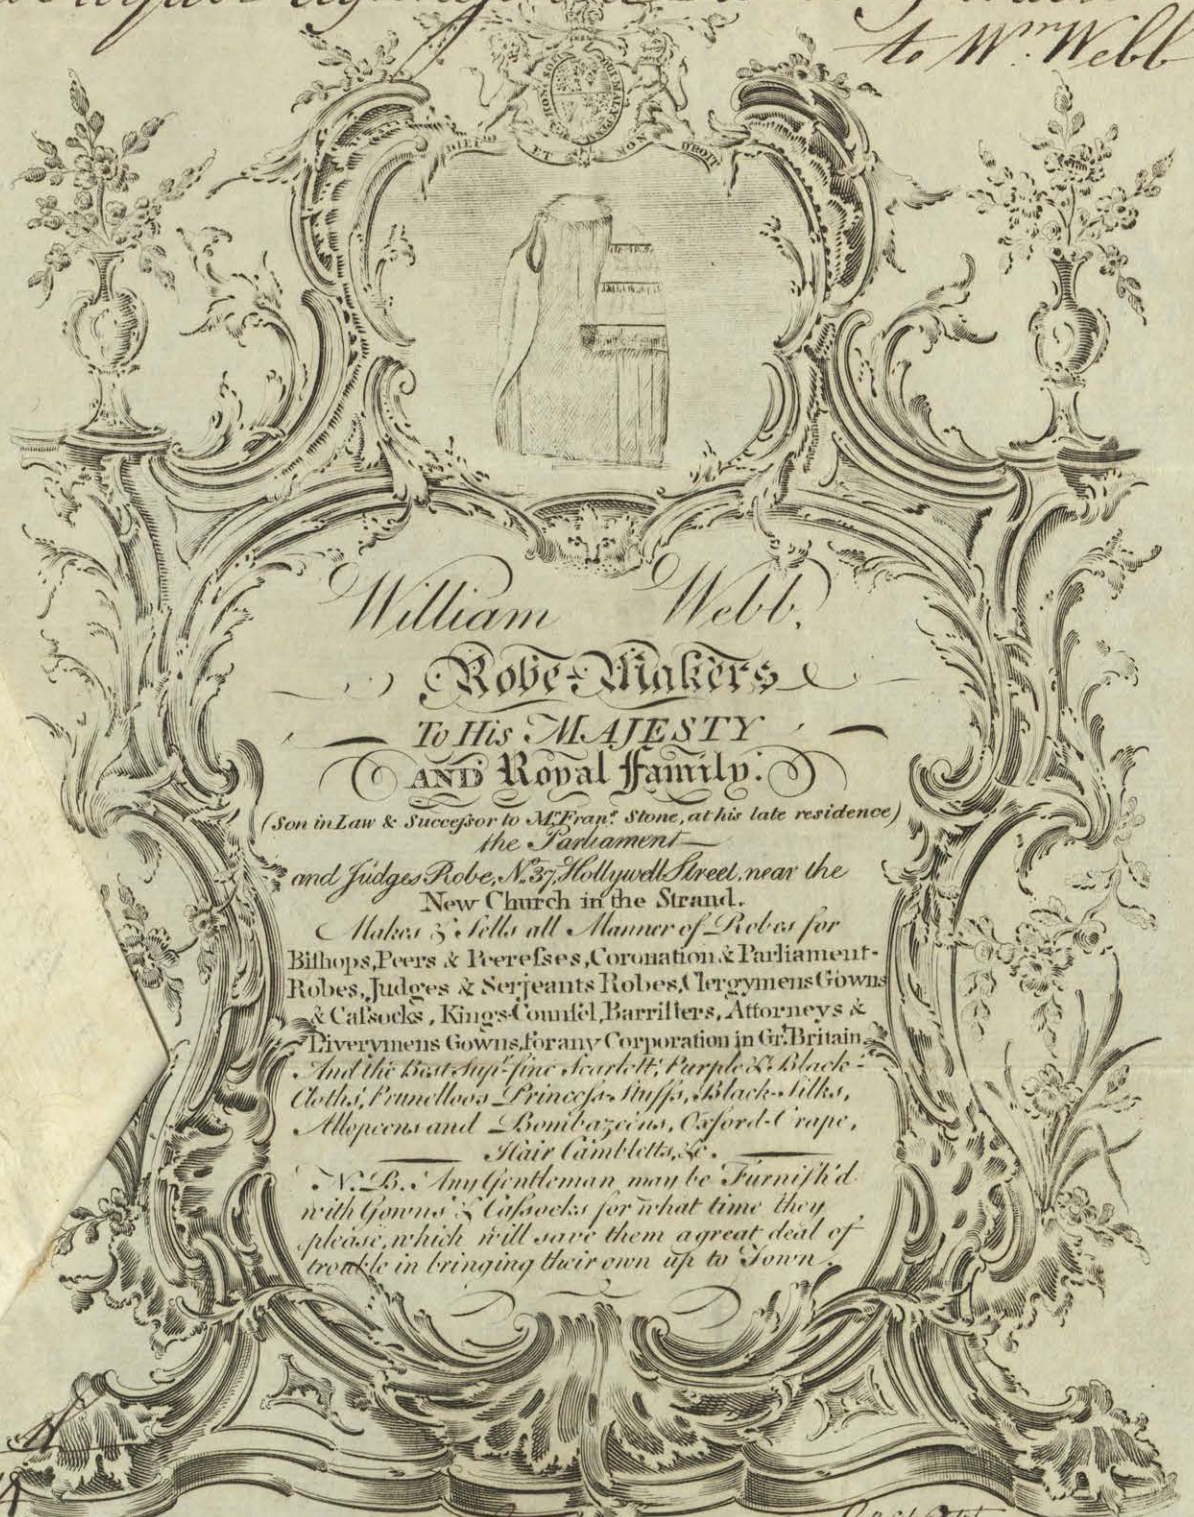 to Wm. Webb
HONI SOIT QUI MAL Y PENSE
DIEU ET MON DROIT
William Webb,
Robe-Makers
To His MAJESTY
AND Royal Family.
(Son in Law & Succeſsor to Mr. Fran.s Stone, at his late residence)
the Parliament
and Judges Robe, No. 37, Hollywell Street, near the
New Church in the Strand.
Makes & Sells all Manner of Robes for
Biſhops, Peers & Peereſses, Coronation & Parliament-
Robes, Judges & Serjeants Robes, Clergymens Gowns
& Caſsocks, King's-Counſel, Barriſters, Attorneys &
Liverymens Gowns, for any Corporation in Gt. Britain.
And the Best Supr. fine Scarlett, Purple & Black-
Cloths, Prunelloes Princeſs-Stuffs, Black-Silks,
Allopeens and Bombazeens, Oxford-Crape,
Hair Cambletts, &c.
N.B. Any Gentleman may be Furniſh'd
with Gowns & Caſsocks for what time they
please, which will save them a great deal of
trouble in bringing their own up to Town.